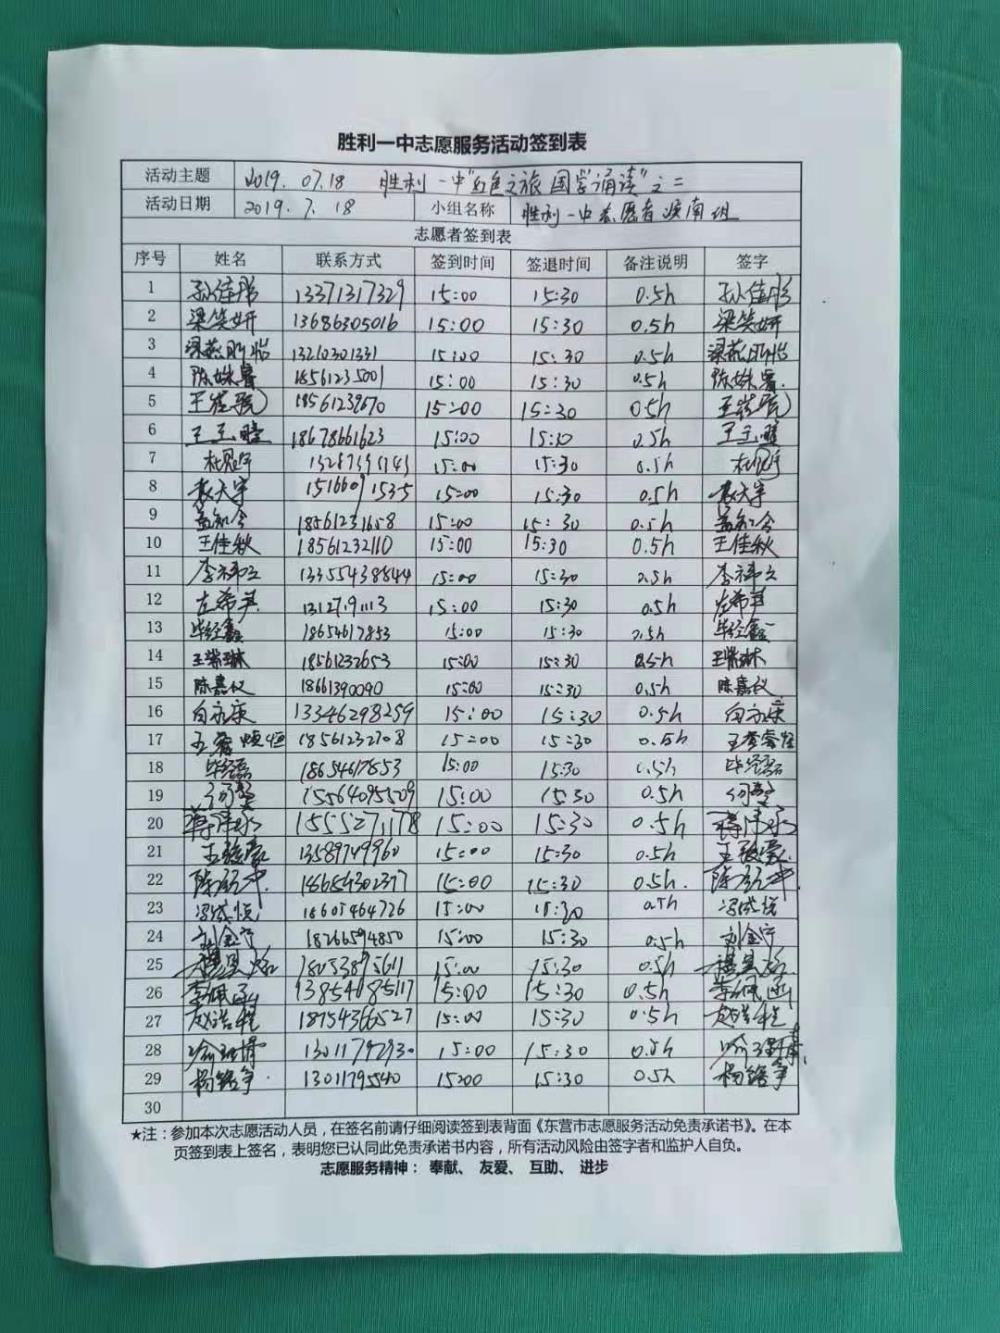 胜利一中志愿服务活动签到表
活动主题 2019.07.18 胜利一中"红色之旅 国学诵读"之二
活动日期 2019.7.18 小组名称 胜利一中志愿者济南组
志愿者签到表
序号 姓名 联系方式 签到时间 签退时间 备注说明 签字
1 孙佳彤 13371317329 15:00 15:30 0.5h 孙佳彤
2 梁笑妍 13686305016 15:00 15:30 0.5h 梁笑妍
3 13210301331 15:00 15:30 0.5h
4 陈姝睿 18561235001 15:00 15:30 0.5h 陈姝睿
5 18561239670 15:00 15:30 0.5h
6 王玉瞳 18678661623 15:00 15:30 0.5h 王玉瞳
7 15:00 15:30 0.5h
8 袁天宇 15166091535 15:00 15:30 0.5h 袁天宇
9 孟知今 18561231658 15:00 15:30 0.5h 孟知今
10 王佳秋 18561232110 15:00 15:30 0.5h 王佳秋
11 李祎文 13355438844 15:00 15:30 0.5h 李祎文
12 左希尹 15:00 15:30 0.5h 左希尹
13 毕经鑫 18654617853 15:00 15:30 0.5h 毕经鑫
14 王紫琳 18561232653 15:00 15:30 0.5h 王紫琳
15 陈嘉仪 18661390090 15:00 15:30 0.5h 陈嘉仪
16 白永康 13346298259 15:00 15:30 0.5h 白永康
17 18561232708 15:00 15:30 0.5h
18 毕经磊 18654617853 15:00 15:30 0.5h 毕经磊
19 15564095509 15:00 15:30 0.5h
20 15552711178 15:00 15:30 0.5h
21 13589749960 15:00 15:30 0.5h
22 18654302377 15:00 15:30 0.5h
23 冯诚悦 18605464726 15:00 15:30 0.5h 冯诚悦
24 刘金宁 18266594850 15:00 15:30 0.5h 刘金宁
25 18053895611 15:00 15:30 0.5h
26 李佩函 13854085117 15:00 15:30 0.5h 李佩函
27 赵浩程 18754366527 15:00 15:30 0.5h 赵浩程
28 13011792930 15:00 15:30 0.5h
29 杨铭争 13011795540 15:00 15:30 0.5h 杨铭争
30
★注：参加本次志愿活动人员，在签名前请仔细阅读签到表背面《东营市志愿服务活动免责承诺书》。在本
页签到表上签名，表明您已认同此免责承诺书内容，所有活动风险由签字者和监护人自负。
志愿服务精神： 奉献、 友爱、 互助、 进步